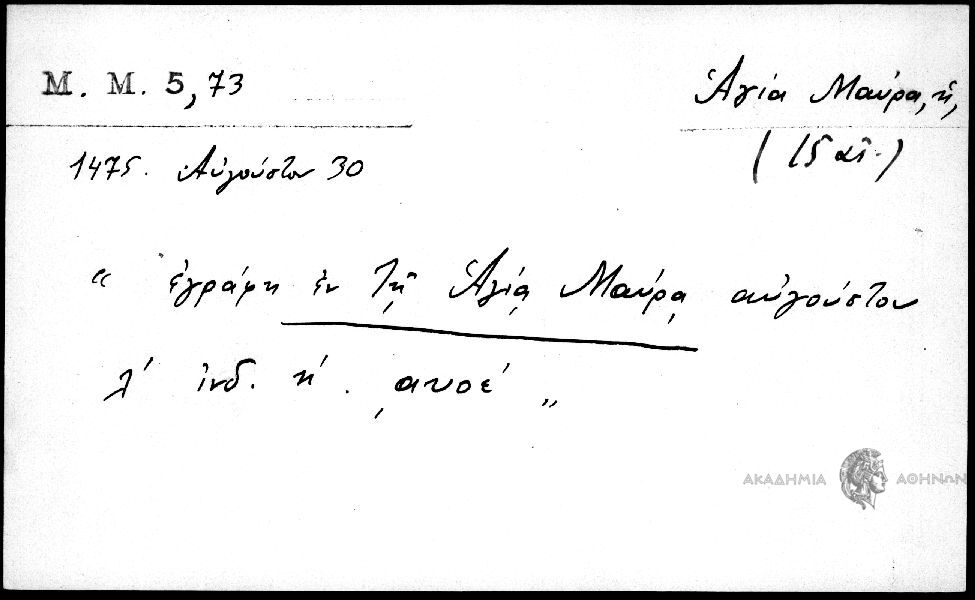 M. M. 5,73
Ἁγία Μαύρα, ἡ,
(15 αἰ.)
1475. Αὐγούστου 30
“ ἐγράφη ἐν τῇ Ἁγίᾳ Μαύρᾳ αὐγούστου
λ´ ἰνδ. η´. ͵αυοε´ „
ΑΚΑΔΗΜΙΑ ΑΘΗΝΩΝ